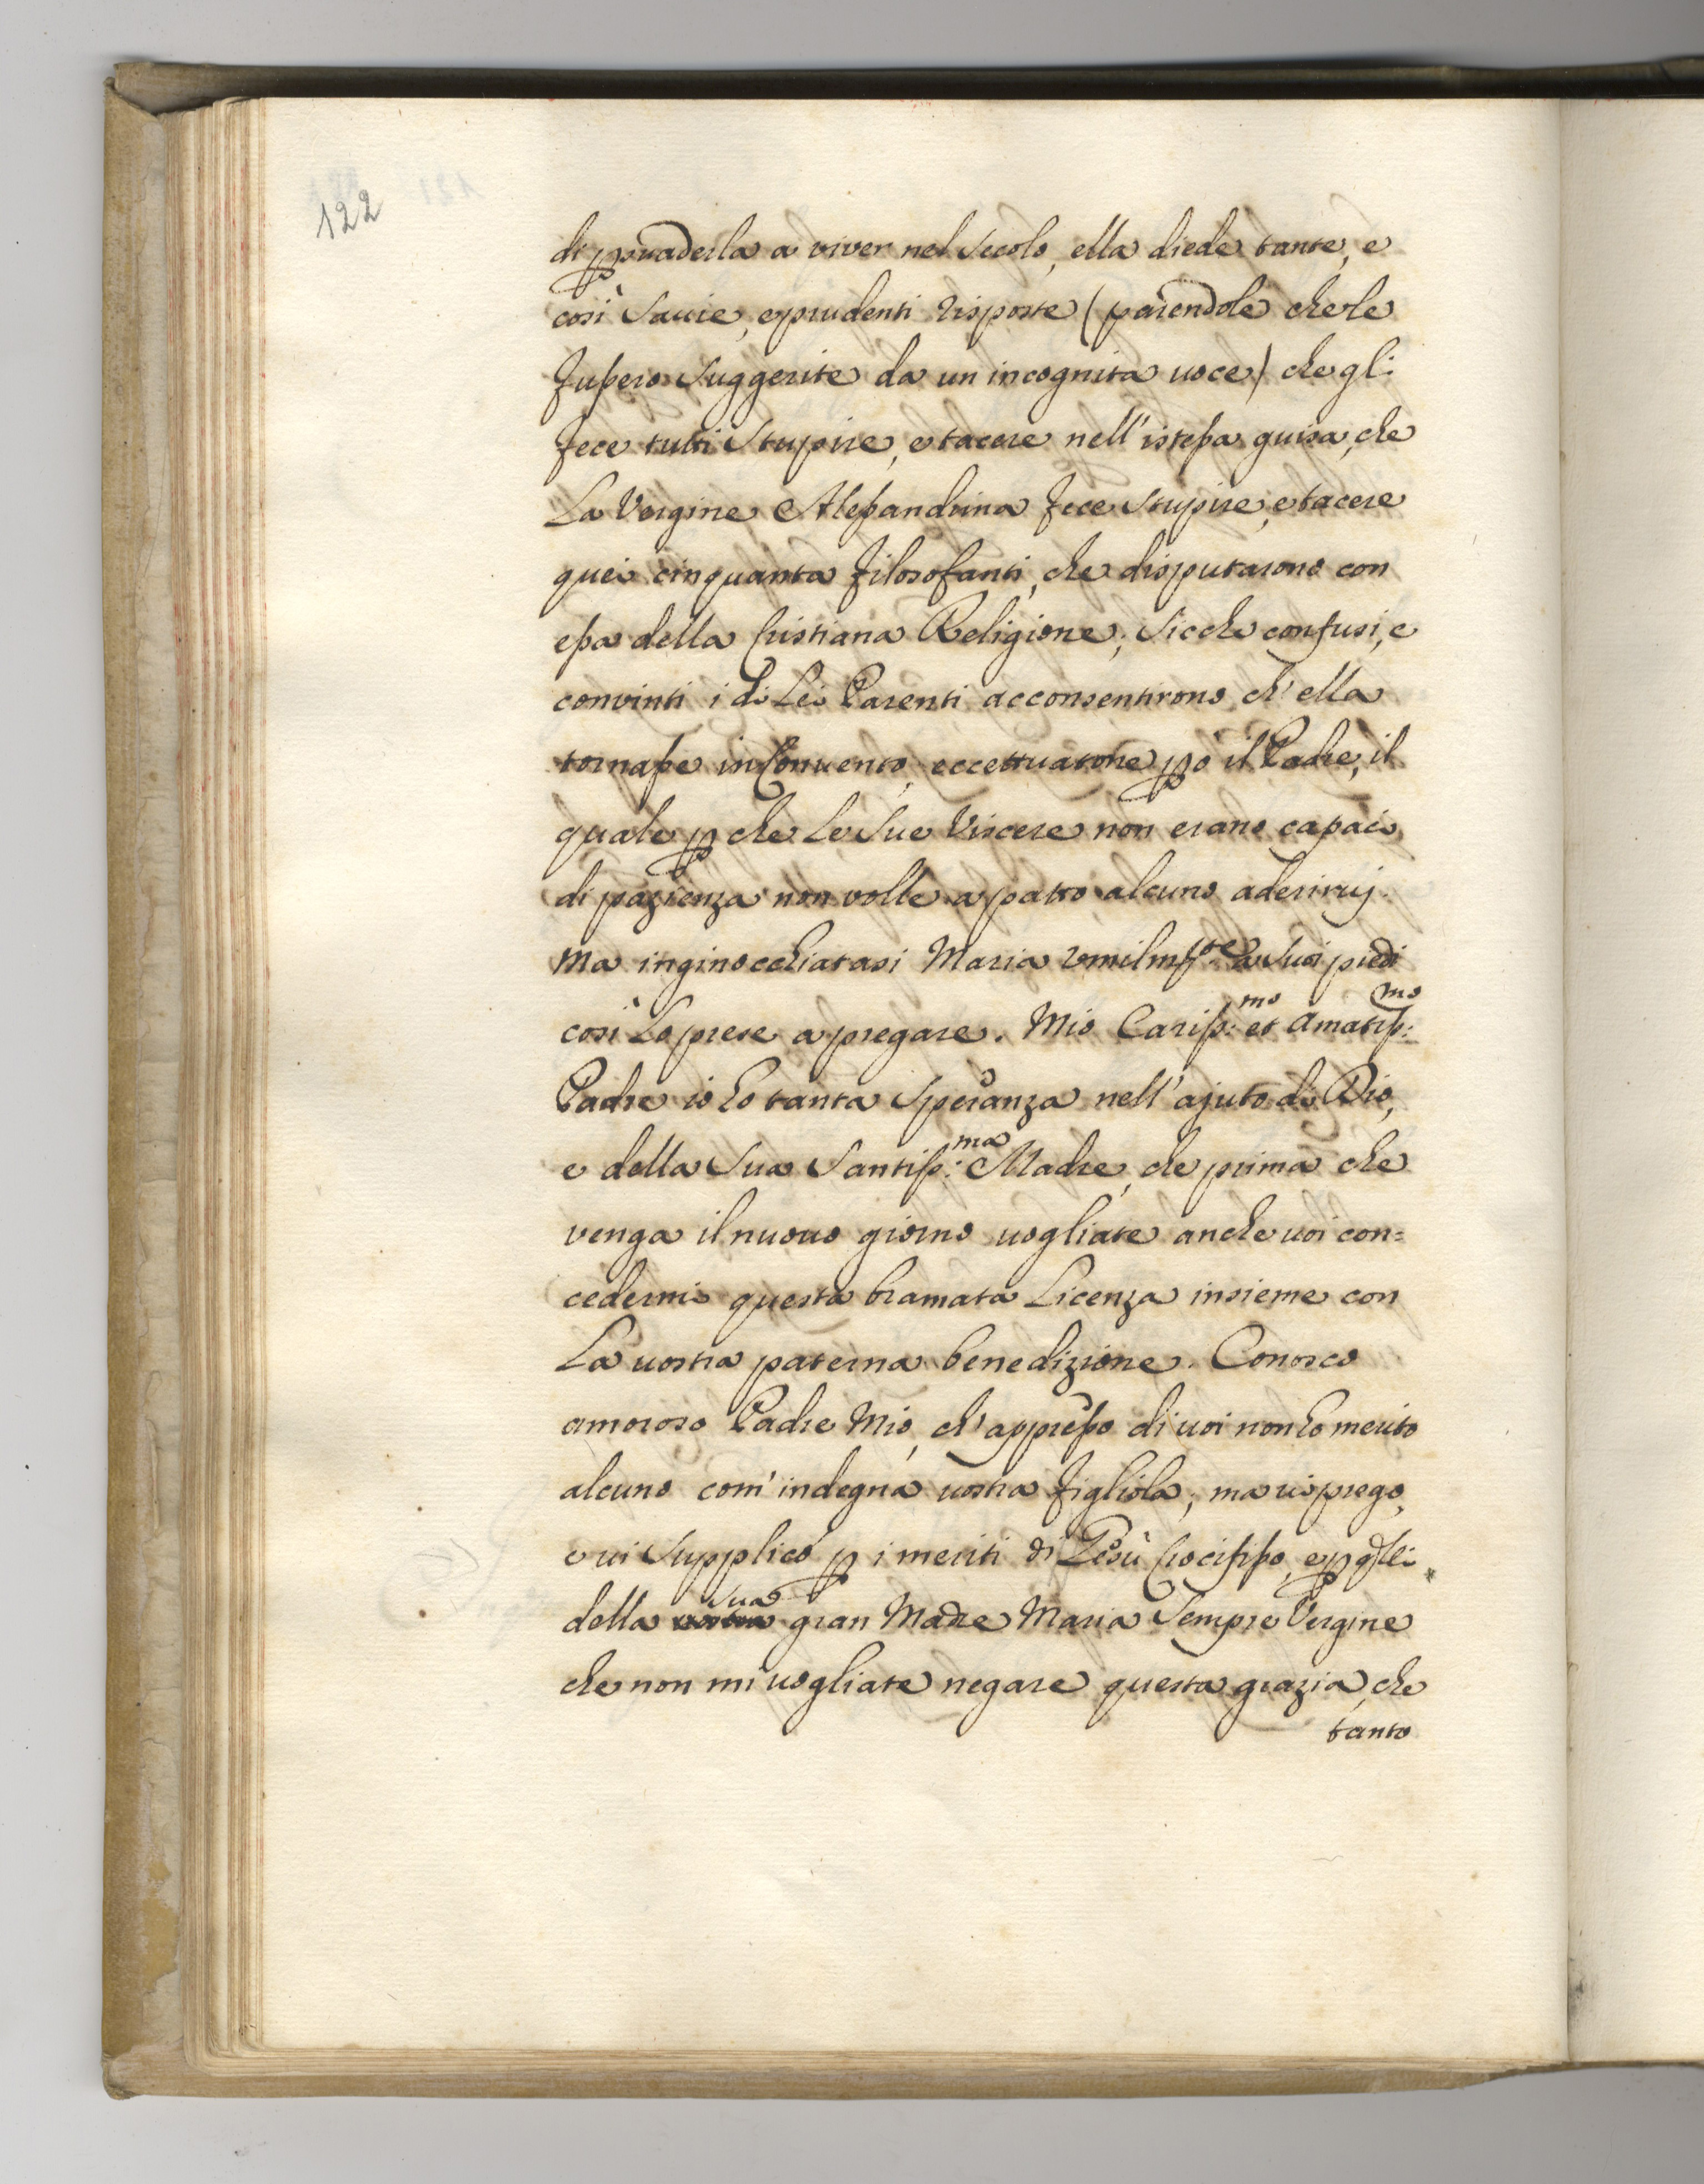 122
di p̱suaderla a viver nel secolo, ella diede tante, e
così sauie, e prudenti risposte (parendole che le
fussero suggerite da un incognita uoce) che gli
fece tutti stupire, e tacere nell'istessa guisa, che
La Vergine Alessandrina fece stupire, e tacere
quei cinquanta filosofanti, che disputarono con
essa della Cristiana Religione; sicche confusi, e
convinti i di Lei Parenti acconsentirono ch'ella
tornasse in Conuento, eccettuatone p̱ò il Padre, il
quale p̱che Le sue Viscere non erano capaci
di pazienza non volle a patto alcuno aderirui.
Ma inginocchiatasi Maria umilmte a suoi piedi
così Lo prese a pregare. Mio Cariss:mo et Amatiss:mo
Padre io ho tanta speranza nell'ajuto di Dio,
e della sua Santiss:ma Madre, che prima che
venga il nuouo giorno uogliate anche uoi con=
cedermi questa bramata Licenza insieme con
La uostra paterna benedizione. Conosco
amoroso Padre Mio, ch'appresso di uoi non ho merito
alcuno com'indegna uostra figliola; ma ui prego,
e ui supplico p̱ i meriti di Gesù Crocifisso, e p̱ qlli
della vostra sua gran Madre Maria sempre Vergine
che non mi uogliate negare questa grazia, che
tanto